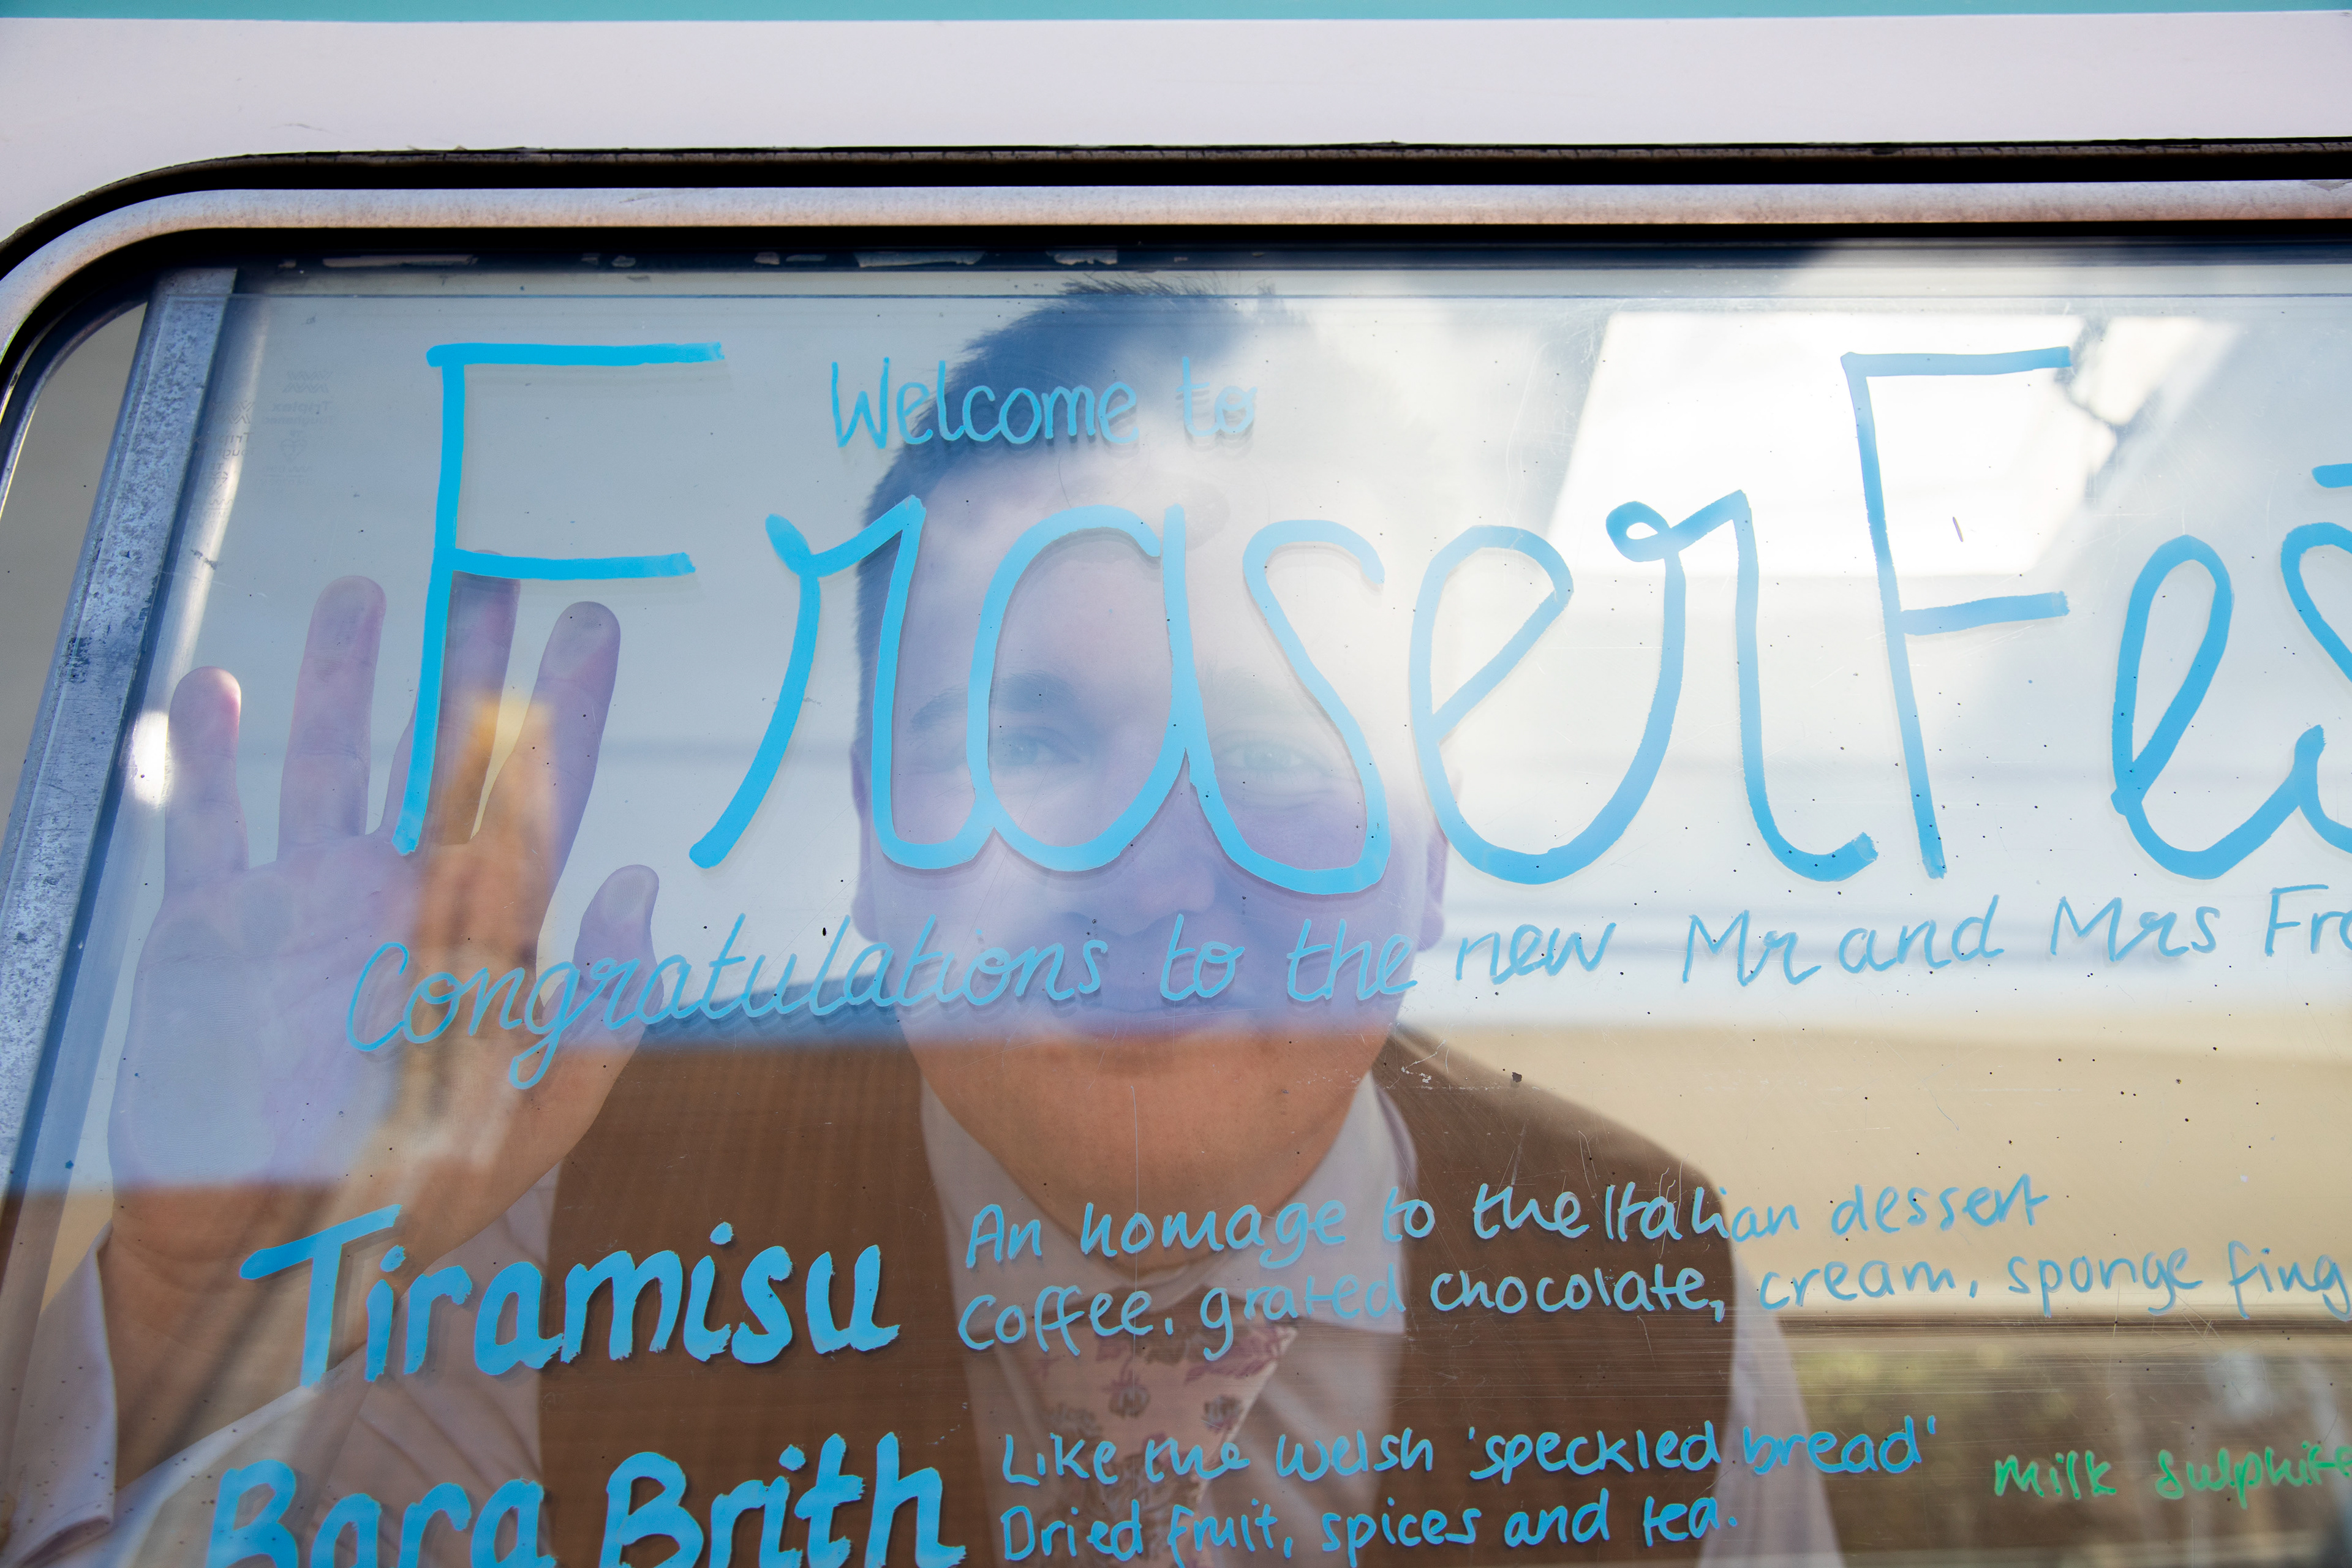 Welcome to
FraserFes
Congratulations to the new Mr and Mrs Fr
Tiramisu
An homage to the Italian dessert
Coffee, grated chocolate, cream, sponge fing
Bara Brith
Like the Welsh 'speckled bread'
Dried fruit, spices and tea.
Milk Sulphit